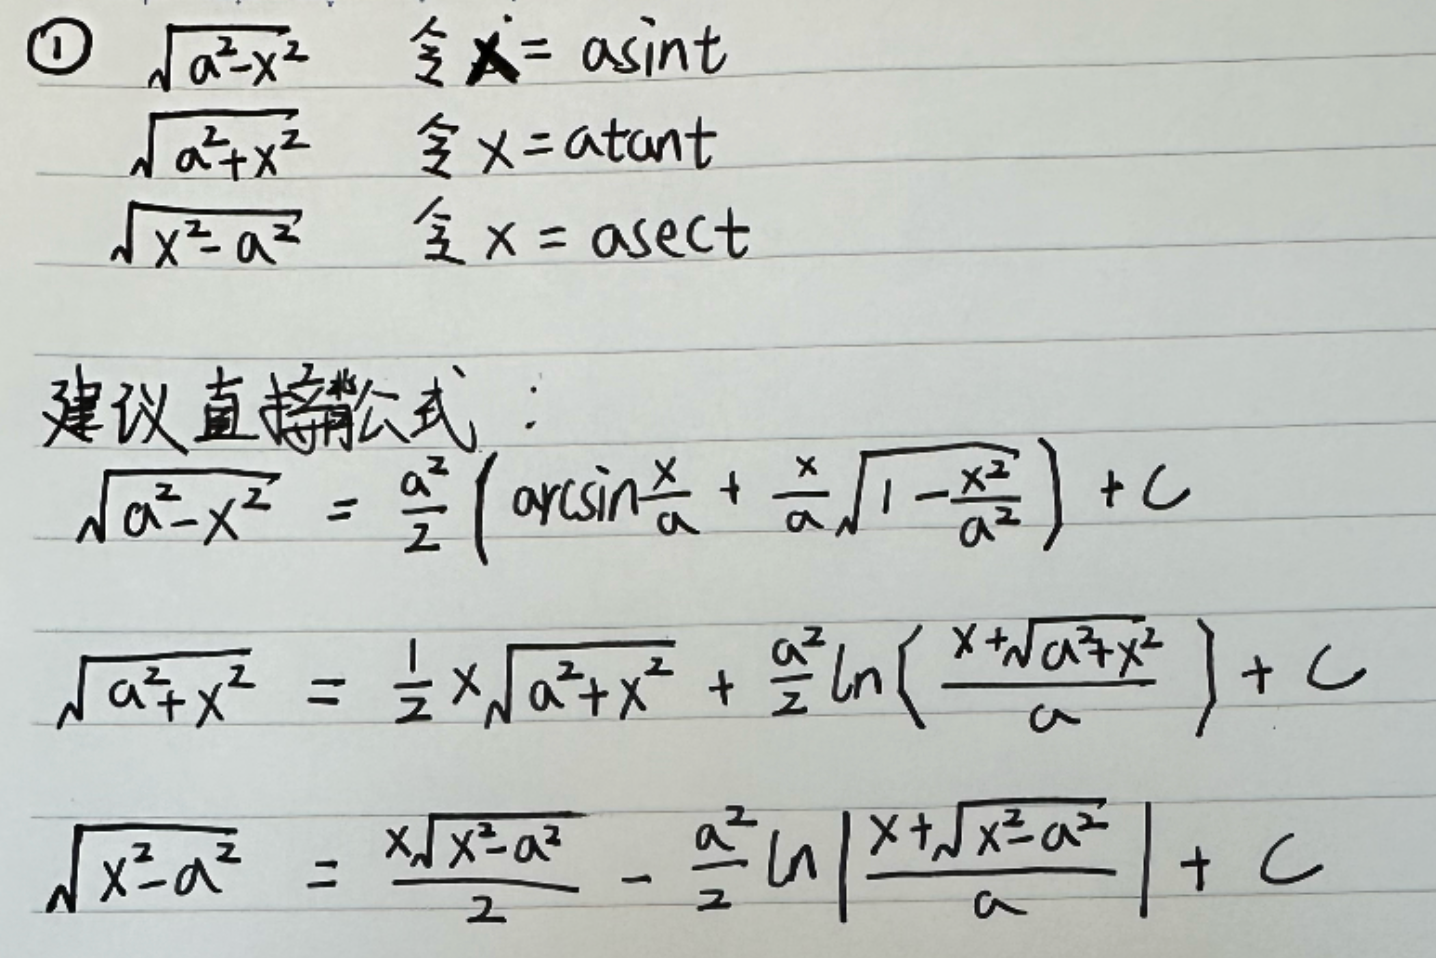 ① √(a²-x²) 令x = asint
√(a²+x²) 令x = atant
√(x²-a²) 令x = asect
建议直接背公式：
√(a²-x²) = a²/2 (arcsin x/a + x/a √(1 - x²/a²)) + C
√(a²+x²) = 1/2 x√(a²+x²) + a²/2 ln((x+√(a²+x²))/a) + C
√(x²-a²) = x√(x²-a²)/2 - a²/2 ln|(x+√(x²-a²))/a| + C